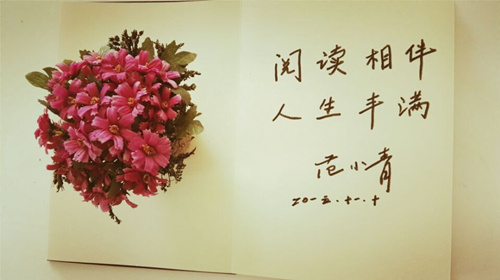 阅读相伴
人生丰满
范小青
二〇一五.十一.十